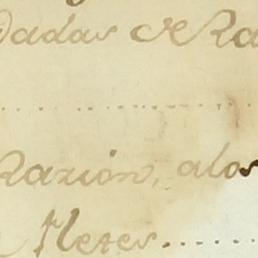 Dadas de Ra
Razión, alos
fletes......